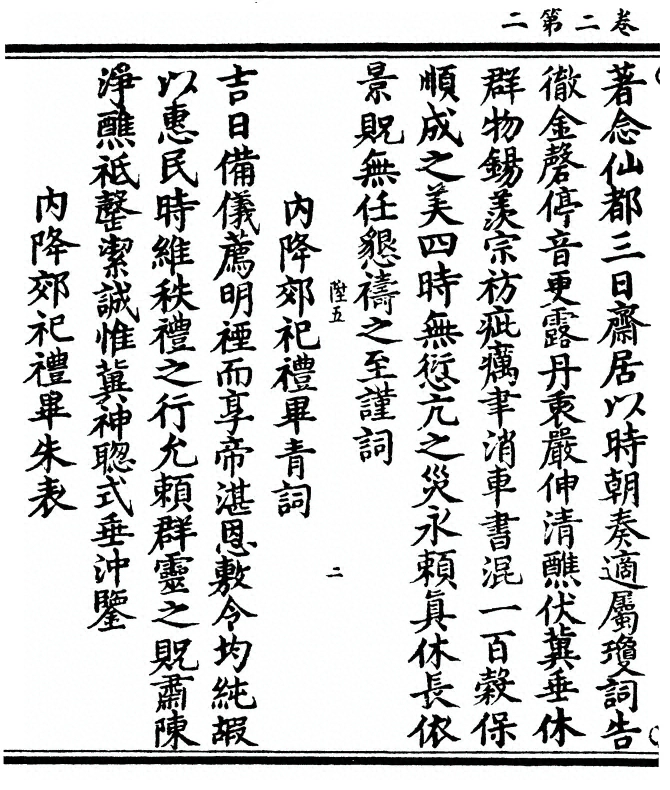 卷二第二
著念仙都三日齋居以時朝奏適屬瓊詞告
徹金磬停音更露丹衷嚴伸清醮伏冀垂休
群物錫羨宗祊疵癘聿消車書混一百穀保
順成之美四時無愆亢之災永賴真休長依
景貺無任懇禱之至謹詞
陞五
二
內降郊祀禮畢青詞
吉日備儀薦明禋而享帝湛恩敷令均純嘏
以惠民時維秩禮之行允賴群靈之貺肅陳
淨醮祗罄潔誠惟冀神聦式垂沖鑒
內降郊祀禮畢朱表